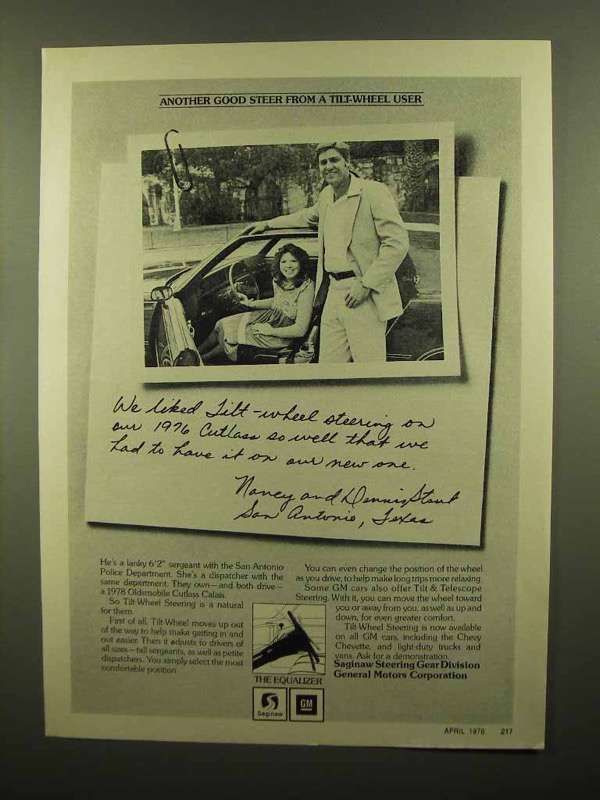 ANOTHER GOOD STEER FROM A TILT-WHEEL USER
We liked Tilt-wheel steering on
our 1976 Cutlass so well that we
had to have it on our new one.
Nancy and Dennis Stout
San Antonio, Texas
He's a lanky 6'2" sergeant with the San Antonio
Police Department. She's a dispatcher with the
same department. They own—and both drive—
a 1978 Oldsmobile Cutlass Calais.
So Tilt-Wheel Steering is a natural
for them.
First of all, Tilt-Wheel moves up out
of the way to help make getting in and
out easier. Then it adjusts to drivers of
all sizes—tall sergeants, as well as petite
dispatchers. You simply select the most
comfortable position.
You can even change the position of the wheel
as you drive, to help make long trips more relaxing.
Some GM cars also offer Tilt & Telescope
Steering. With it, you can move the wheel toward
you or away from you, as well as up and
down, for even greater comfort.
Tilt-Wheel Steering is now available
on all GM cars, including the Chevy
Chevette, and light-duty trucks and
vans. Ask for a demonstration.
Saginaw Steering Gear Division
General Motors Corporation
THE EQUALIZER
Saginaw
GM
APRIL 1978 217